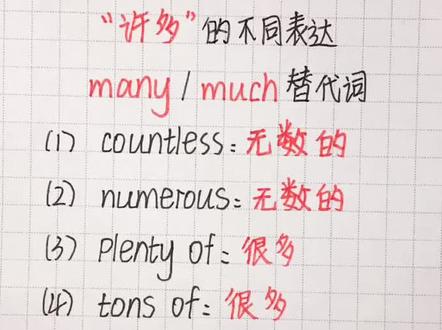 “许多”的不同表达
many / much 替代词
(1) countless: 无数的
(2) numerous: 无数的
(3) plenty of: 很多
(4) tons of: 很多